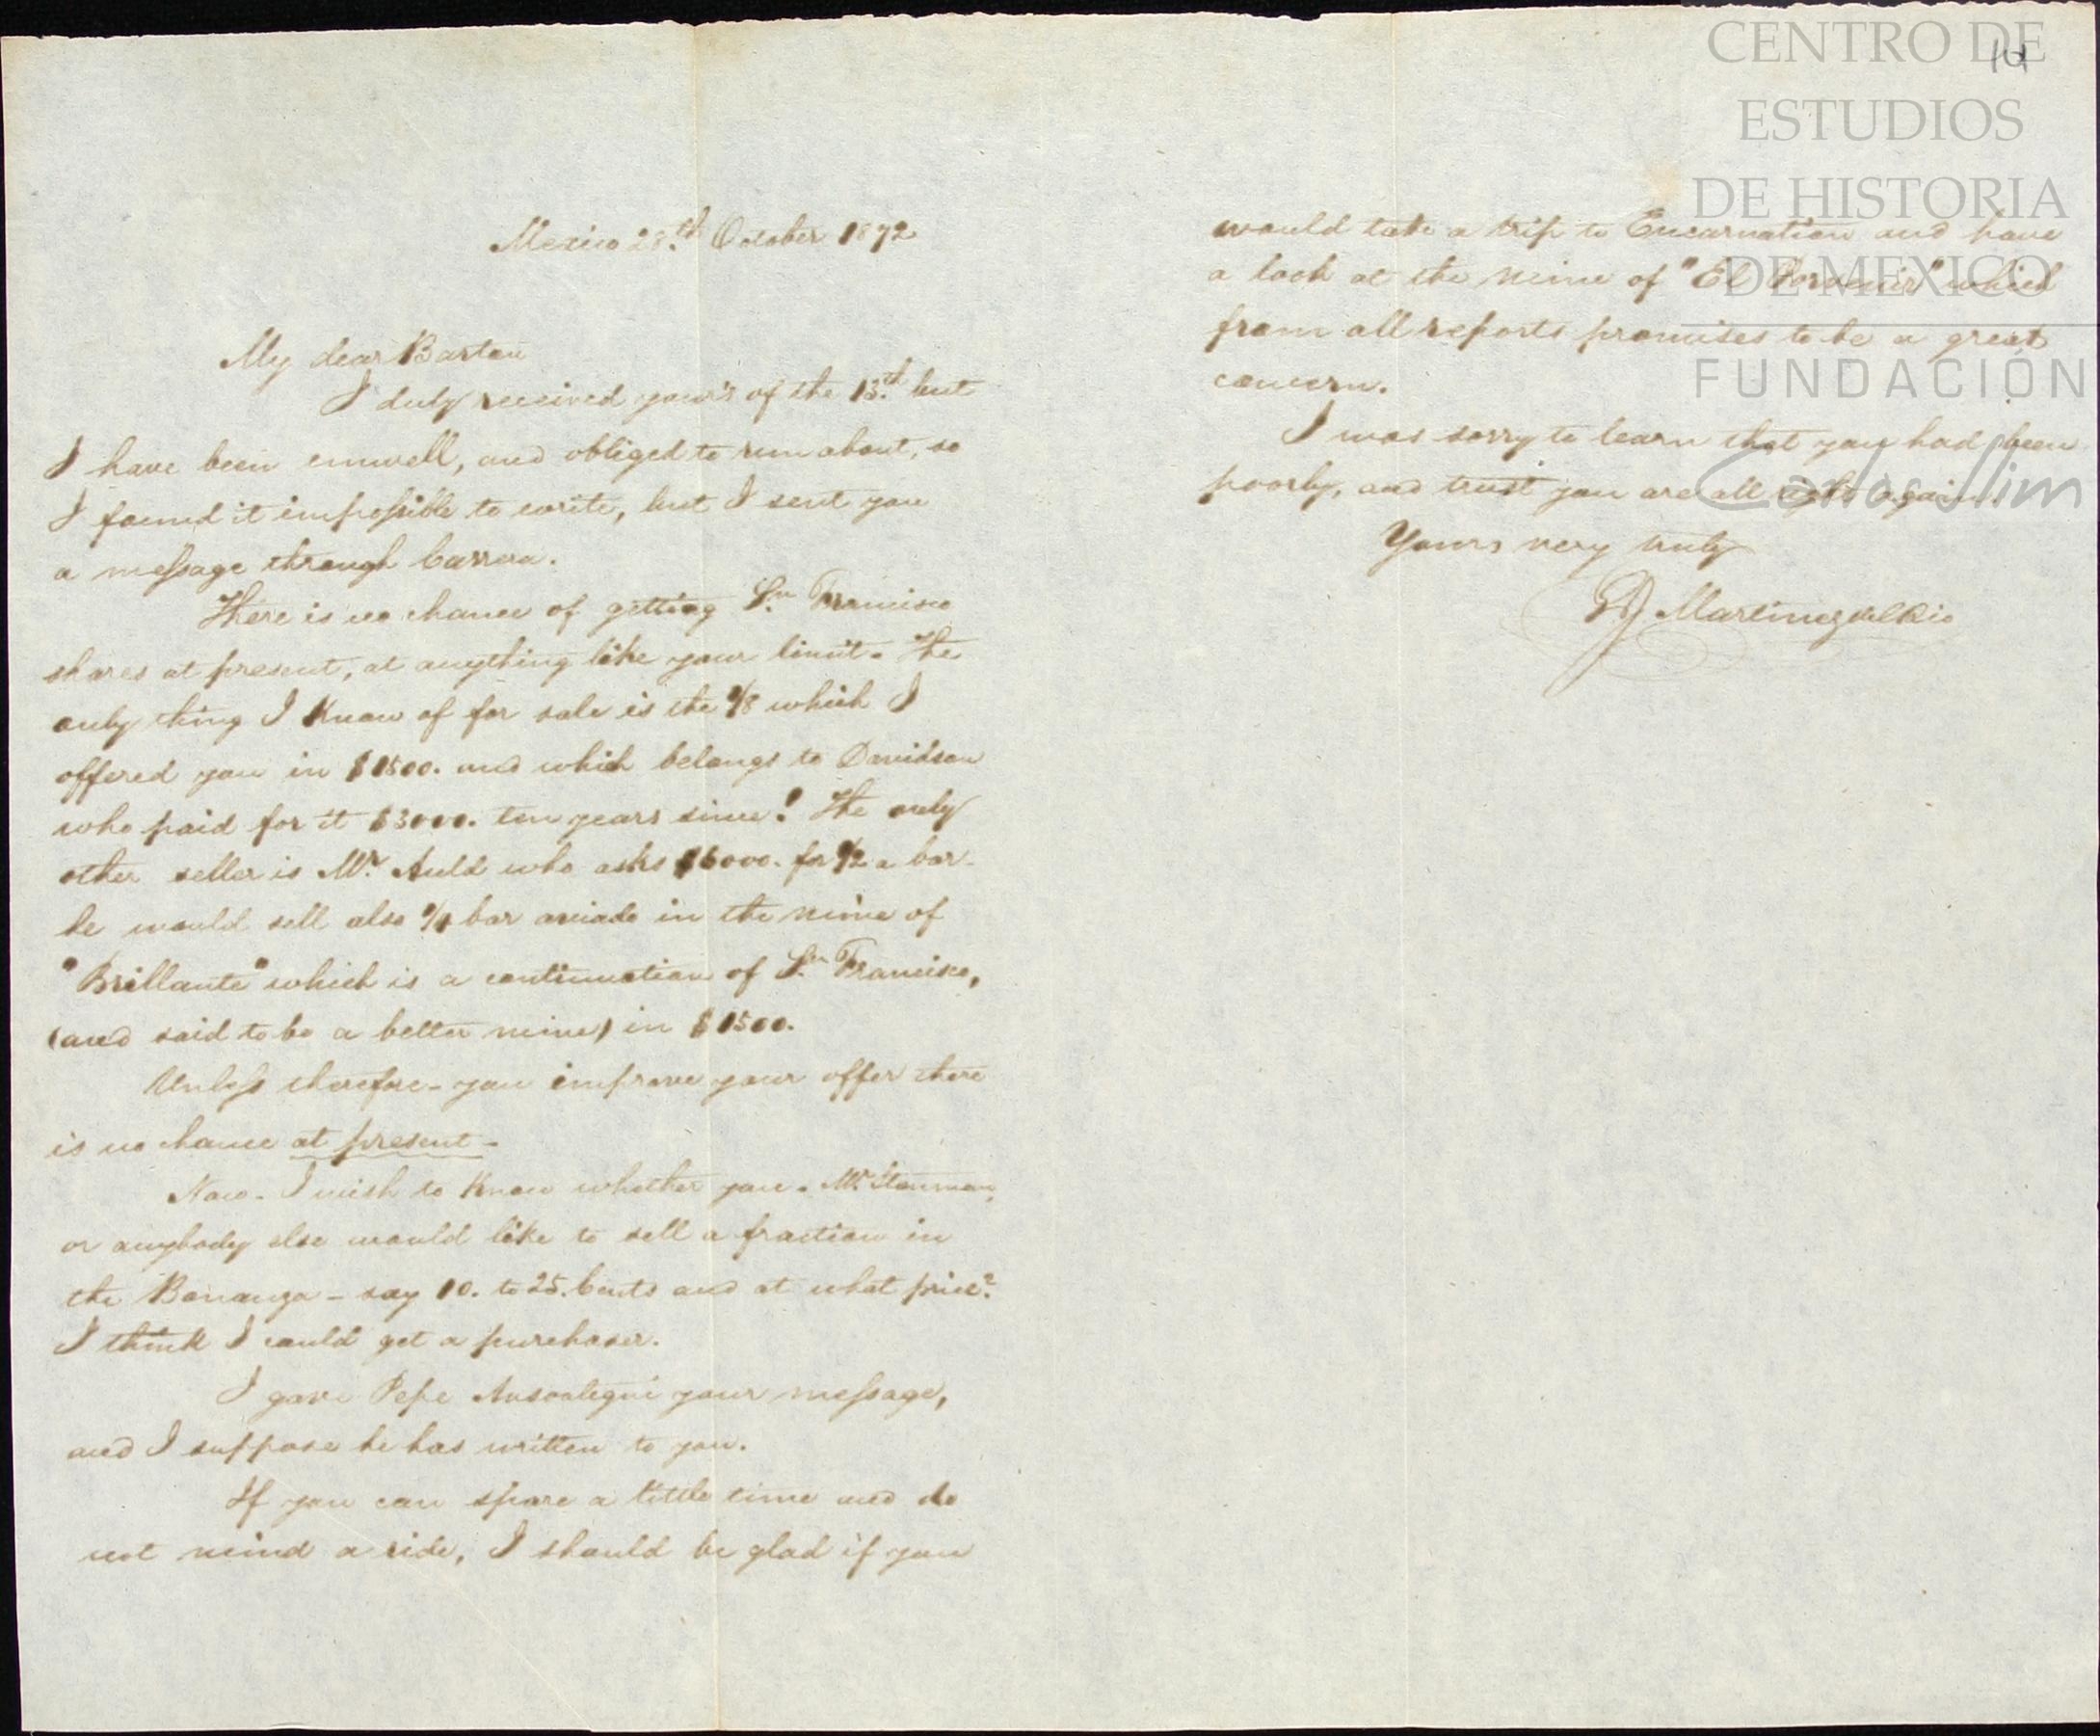 Mexico 28.th October 1872
My dear Barton
I duly received your's of the 13.th but
I have been unwell, and obliged to run about, so
I found it impossible to write, but I sent you
a message through Carrera.
There is no chance of getting Sn. Francisco
shares at present, at anything like your limit. The
only thing I know of for sale is the 1/8 which I
offered you in $1500. and which belongs to Davidson
who paid for it $3000. ten years since! The only
other seller is Mr. Auld who asks $6000. for 1/2 a bar-
he would sell also 1/4 bar aviado in the mine of
"Brillante" which is a continuation of Sn. Francisco,
(and said to be a better mine) in $1500.
Unless therefore - you improve your offer there
is no chance at present -
Now - I wish to know whether you - Mr.
or anybody else would like to sell a fraction in
the Bonanza - say 10. to 25. Cents and at what price?
I think I could get a purchaser.
I gave Pepe Ansoategui your message,
and I suppose he has written to you.
If you can spare a little time and do
not mind a ride, I should be glad if you
14
would take a trip to Encarnation and have
a look at the mine of "El Porvenir" which
from all reports promises to be a great
concern.
I was sorry to learn that you had been
poorly, and trust you are all right again.
Yours very truly
Martinez del Rio
CENTRO DE
ESTUDIOS
DE HISTORIA
DE MEXICO
FUNDACIÓN
Carlos Slim